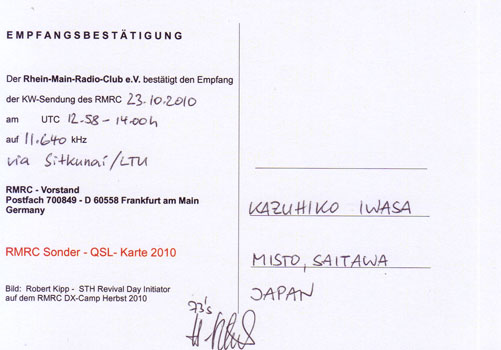 EMPFANGSBESTÄTIGUNG
Der Rhein-Main-Radio-Club e.V. bestätigt den Empfang
der KW-Sendung des RMRC 23.10.2010
am UTC 12.58 - 14.00h
auf 11.640 kHz
via Sitkunai/LTU
RMRC - Vorstand
Postfach 700849 - D 60558 Frankfurt am Main
Germany
RMRC Sonder - QSL- Karte 2010
Bild: Robert Kipp - STH Revival Day Initiator
auf dem RMRC DX-Camp Herbst 2010
73's
KAZUHIKO IWASA
MISTO, SAITAWA
JAPAN